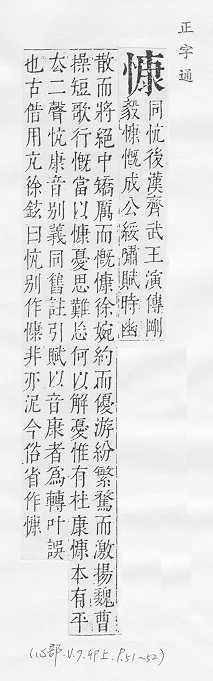 正字通
慷
同忼後漢齊武王演傳剛
毅慷慨成公綏嘯賦時幽
散而將絕中矯厲而慨慷徐婉約而優游紛繁騖而激揚魏曹
操短歌行慨當以慷憂思難忘何以解憂惟有杜康慷本有平
去二聲忼康音別義同舊註引賦以音康者為轉叶誤
也古借用亢徐鉉曰忼別作慷非亦泥今俗省作慷
(心部.V.7.卯上.P.51~52)